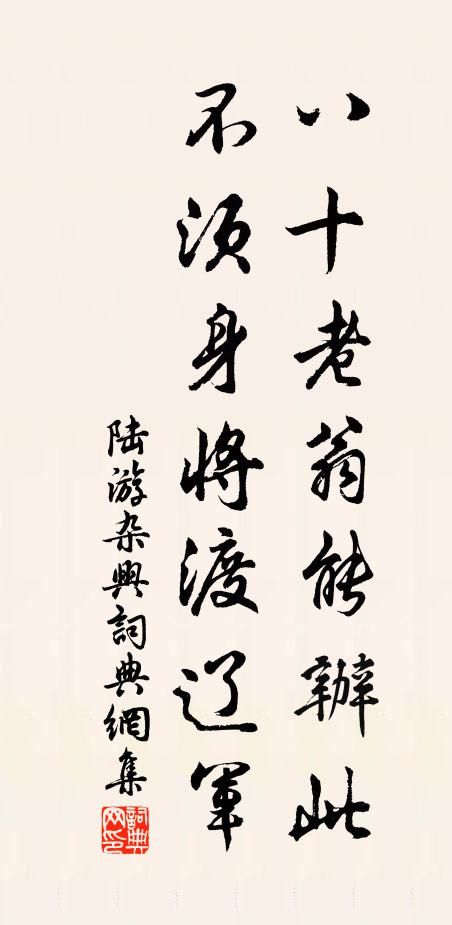 八十老翁能辦此
不須身將渡辽軍
陆游杂興詞典網集
詞典网印